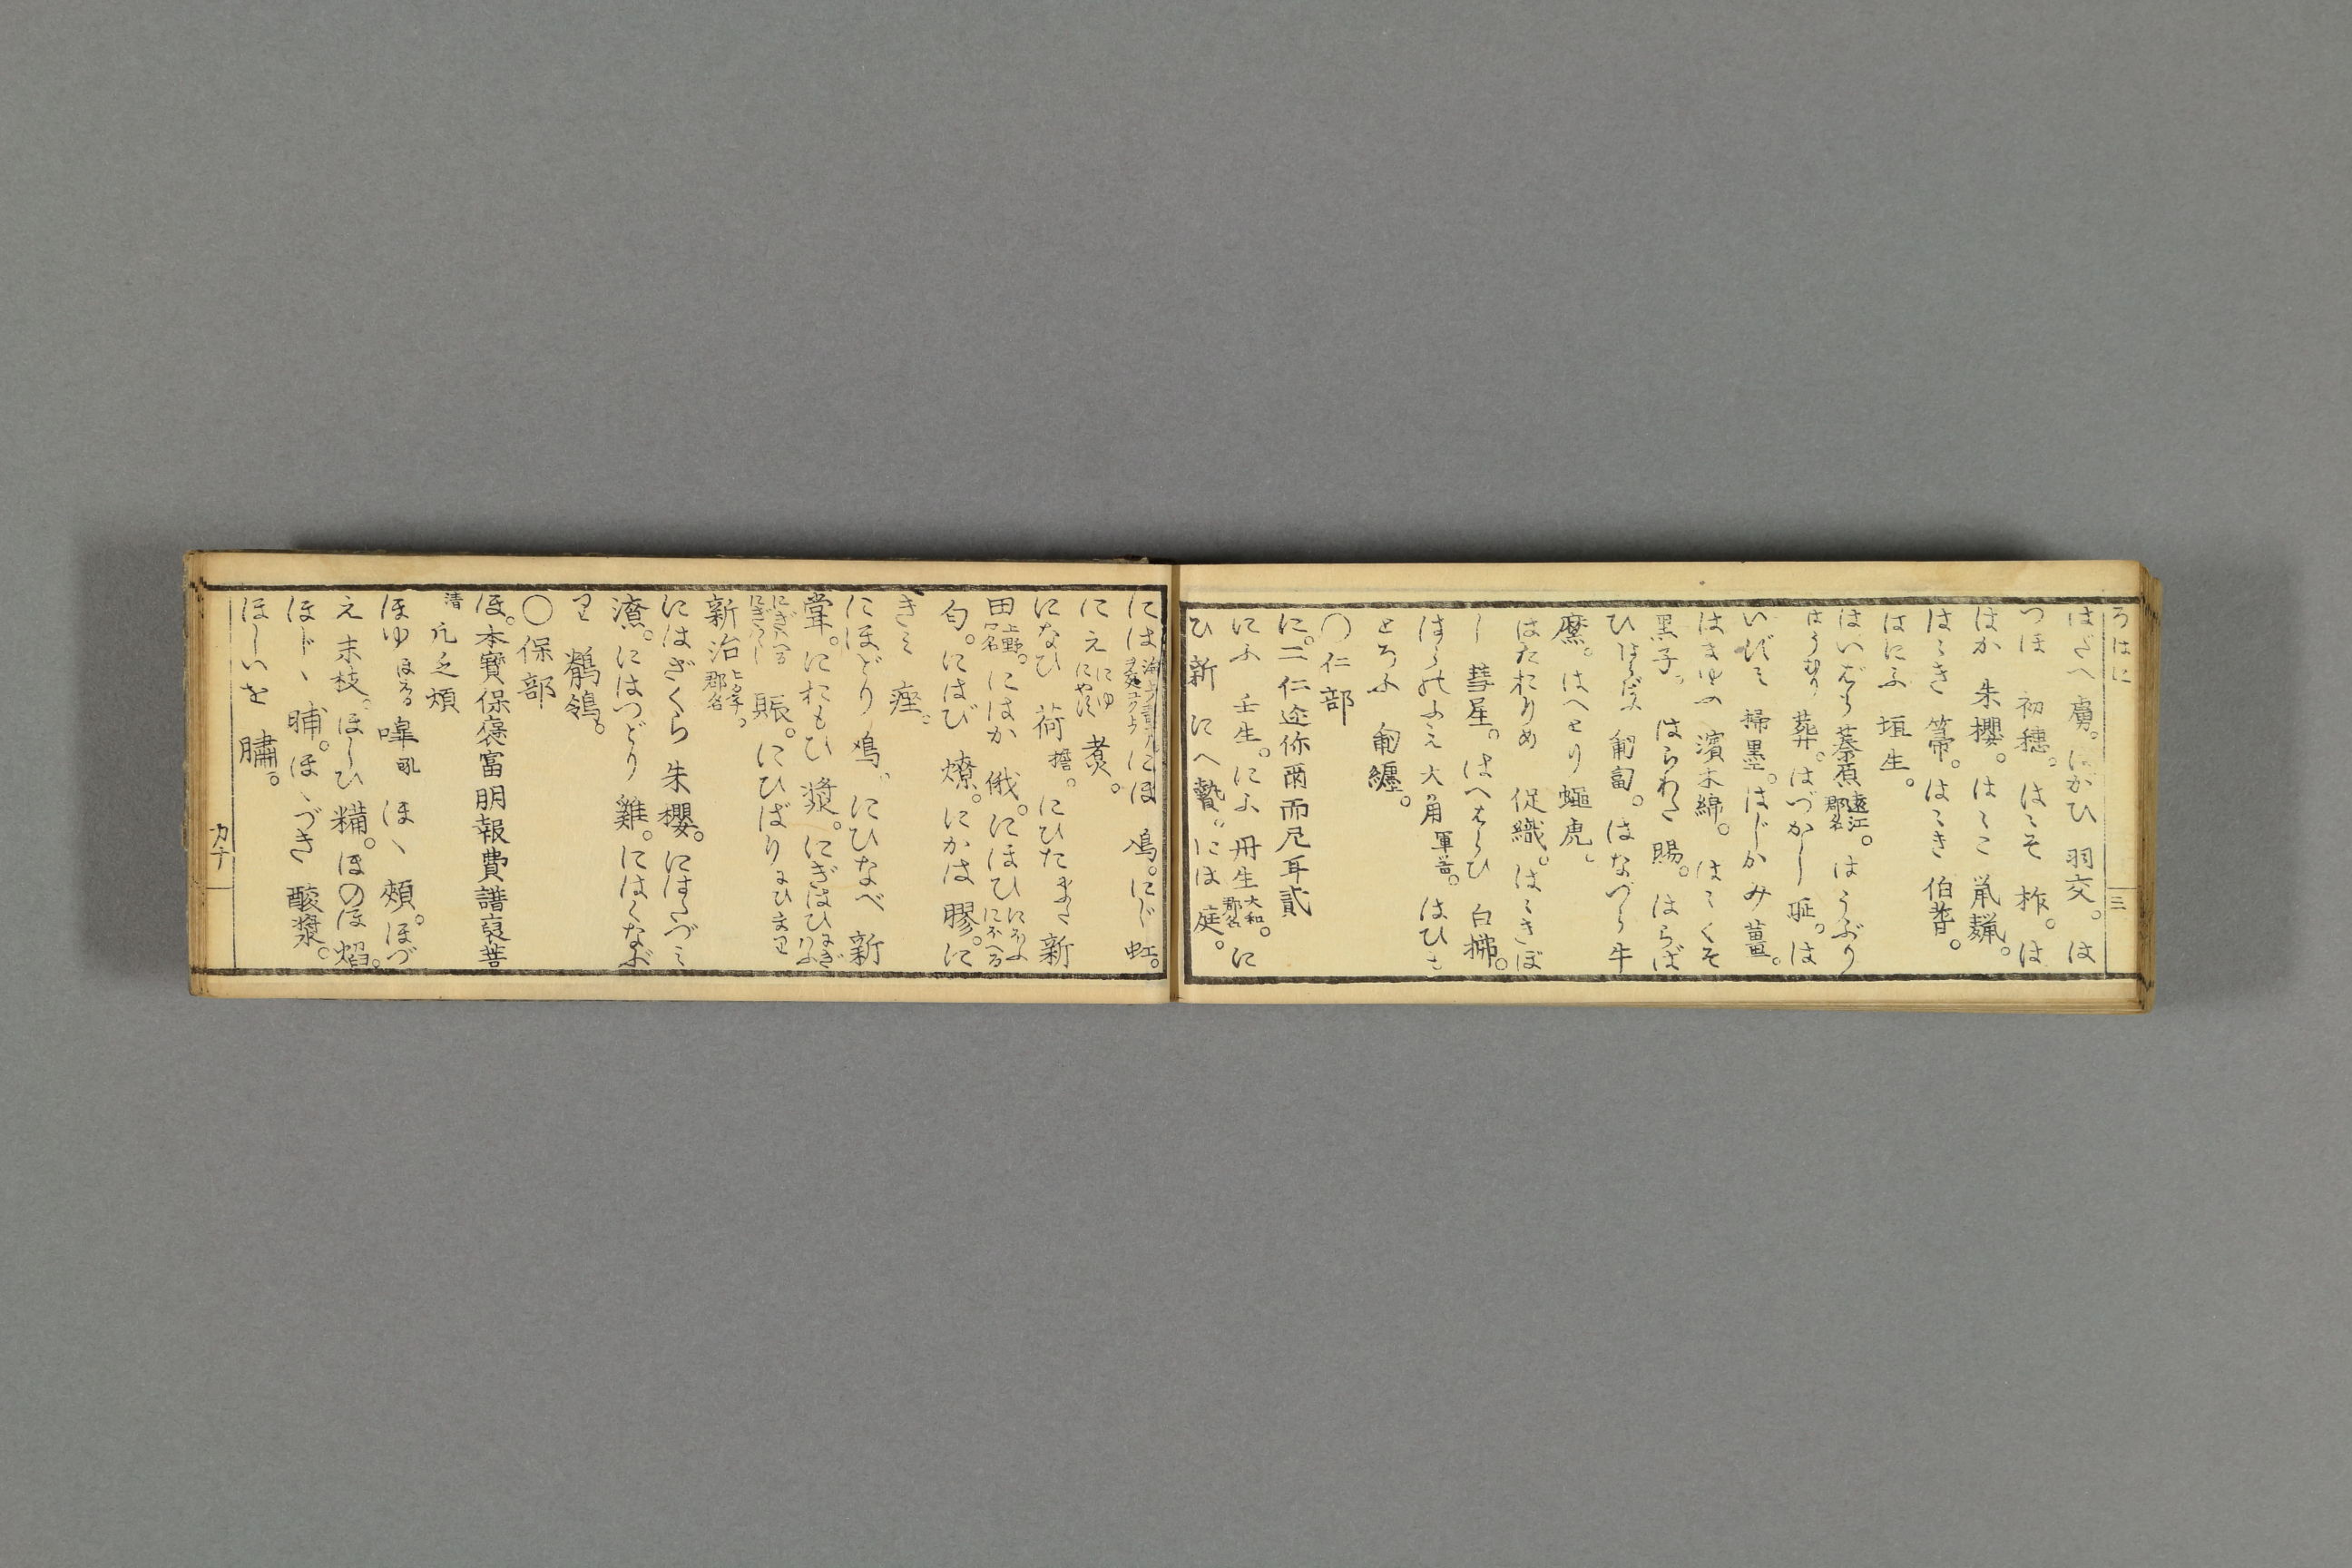 ろはに
三
はざへ 膚。はがひ 羽交。は
つほ 初穂。はゝそ 柞。は
はか 朱櫻。はゝこ 鼠麹。
はゝき 箒。はゝき 伯耆。
はにふ 埴生。
はいばら 蓁原 遠江郡名。はうぶり
はうむり 葬。はづかし 耻。は
いずみ 掃墨。はじかみ 薑。
はまゆふ 濱木綿。はゝくそ
黒子。はらわた 腸。はらば
ひ はらばふ 匍匐。はなづら 牛
縻。はへとり 蠅虎。
はたおりめ 促織。はゝきぼ
し 彗星。はへはらひ 白拂。
はらのふえ 大角 軍器。はひも
とろふ 匍纏。
〇仁部
に。二仁迩你爾而尼耳貳
にふ 壬生。にふ 丹生 大和郡名。に
ひ 新 にへ 贄。には 庭。
にほ 鳰。にじ 虹。
にえ にゆ 煮。
になひ 荷 擔。にひた 新
田 上野郡名。にはか 俄。にほひ にほふ にほへる
匂。にはび 燎。にかは 膠。に
きみ 痤。
にほどり 鳰。にひなべ 新
甞。におもひ 漿。にぎはひ
にぎはへる にぎはし 賑。にひばり
新治 郡名。
にはざくら 朱櫻。にはたづみ
潦。にはつどり 雞。にはくなぶ
り 鶺鴒。
〇保部
ほ。本寶保褒富朋報費譜裒菩
清 凡乏煩
ほゆ ほえる 嘷吼 ほゝ 頰。ほづ
え 末枝。ほしひ 糒。ほのほ 焰。
ほじゝ 脯。ほゝづき 酸漿。
ほしいを 鱐。
カナ